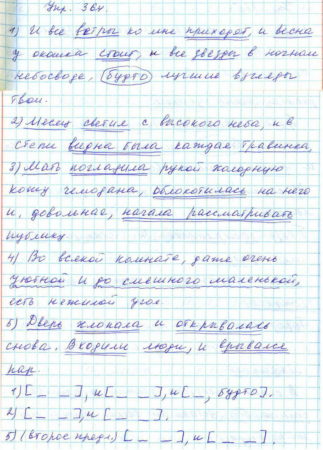 Упр. 364
1) И все ветры ко мне приходят, и весна
у окошка стоит, и все звёзды в ночном
небосводе, будто лучшие взгляды
твои.
2) Месяц светил с высокого неба, и в
степи видна была каждая травинка,
3) Мать погладила рукой холодную
кожу чемодана, облокотилась на него
и, довольная, начала рассматривать
публику
4) Во всякой комнате, даже очень
уютной и до смешного маленькой,
есть нежилой угол.
5) Дверь хлопала и открывалась
снова. Входили люди, и врывался
пар
1) [_ _], и [_ _], и [_, будто].
2) [_ _], и [_ _].
5) (второе предл.) [_ _], и [_ _].